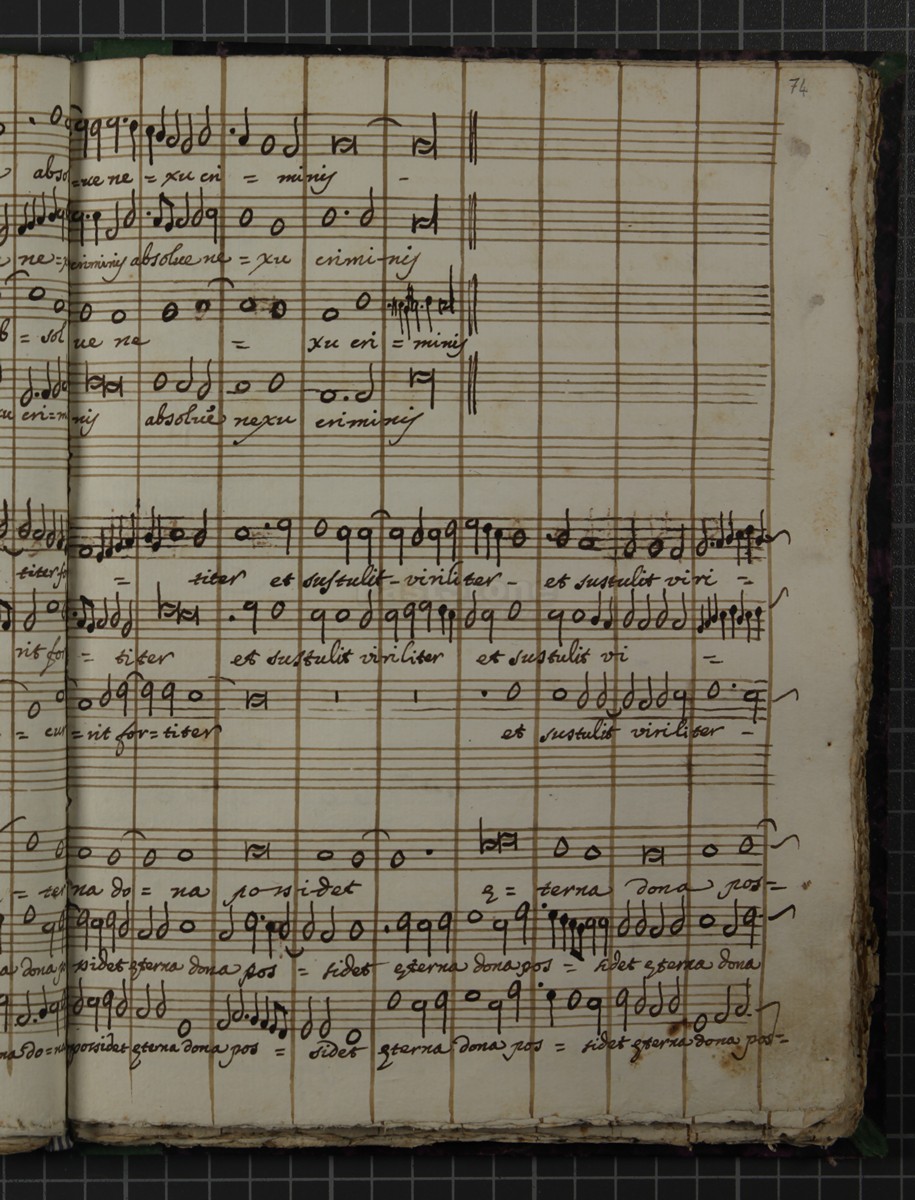 74
abso=ue ne = xu cri = minis -
ne=x criminis absolue ne = xu criminis
= sol ue ne = xu cri = minis
cri=m nis absoluê nexu criminis
titer fo = titer et sustulit - viriliter - et sustulit viri =
rit for = titer et sustulit viriliter et sustulit vi =
= cur = rit for = titer et sustulit viriliter -
= ter na do = na possidet ę = terna dona pos=
dona p ssidet ęterna dona pos = sidet ęterna dona pos = sidet ęterna dona
na do=na possidet ęterna dona pos = sidet ęterna dona pos = sidet ęterna dona pos=